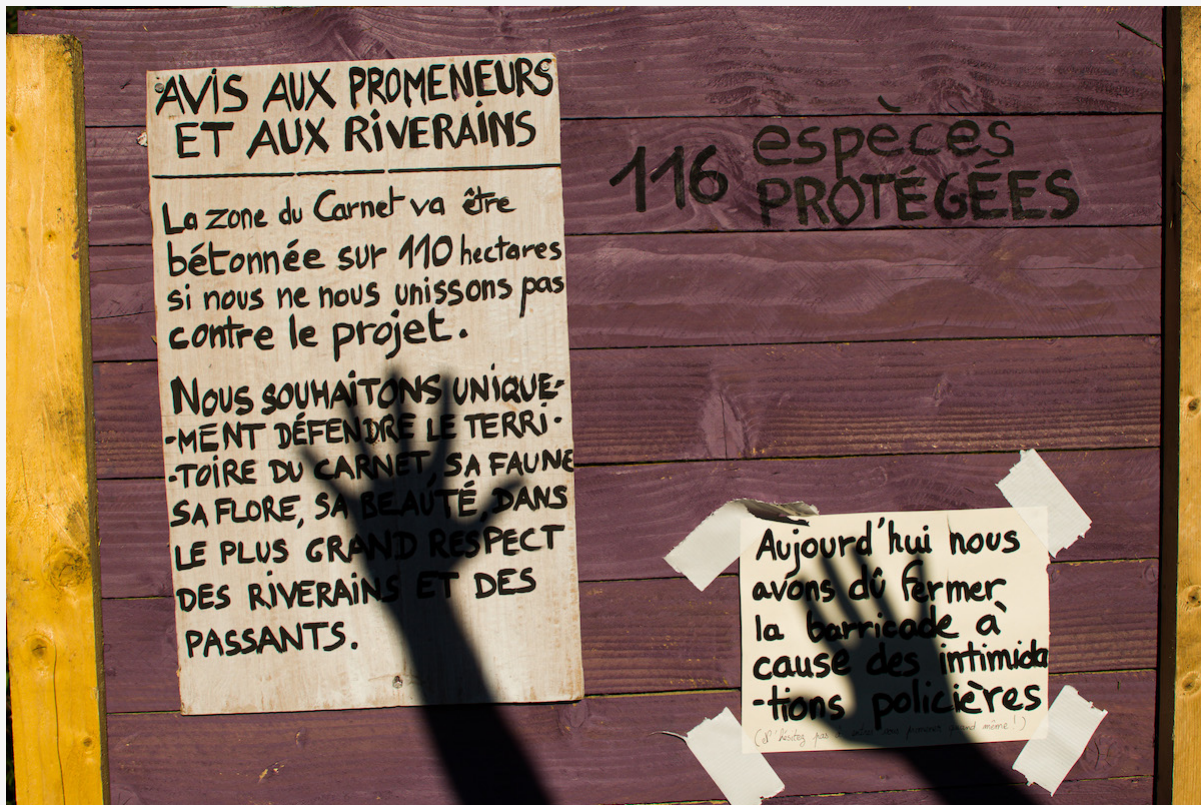 AVIS AUX PROMENEURS
ET AUX RIVERAINS
La zone du Carnet va être
bétonnée sur 110 hectares
si nous ne nous unissons pas
contre le projet.
NOUS SOUHAITONS UNIQUE-
-MENT DÉFENDRE LE TERRI-
-TOIRE DU CARNET, SA FAUNE
SA FLORE, SA BEAUTÉ, DANS
LE PLUS GRAND RESPECT
DES RIVERAINS ET DES
PASSANTS.
116 espèces
PROTÉGÉES
Aujourd'hui nous
avons dû fermer
la barricade à
cause des intimida
-tions policières
(N'hésitez pas quand même!)